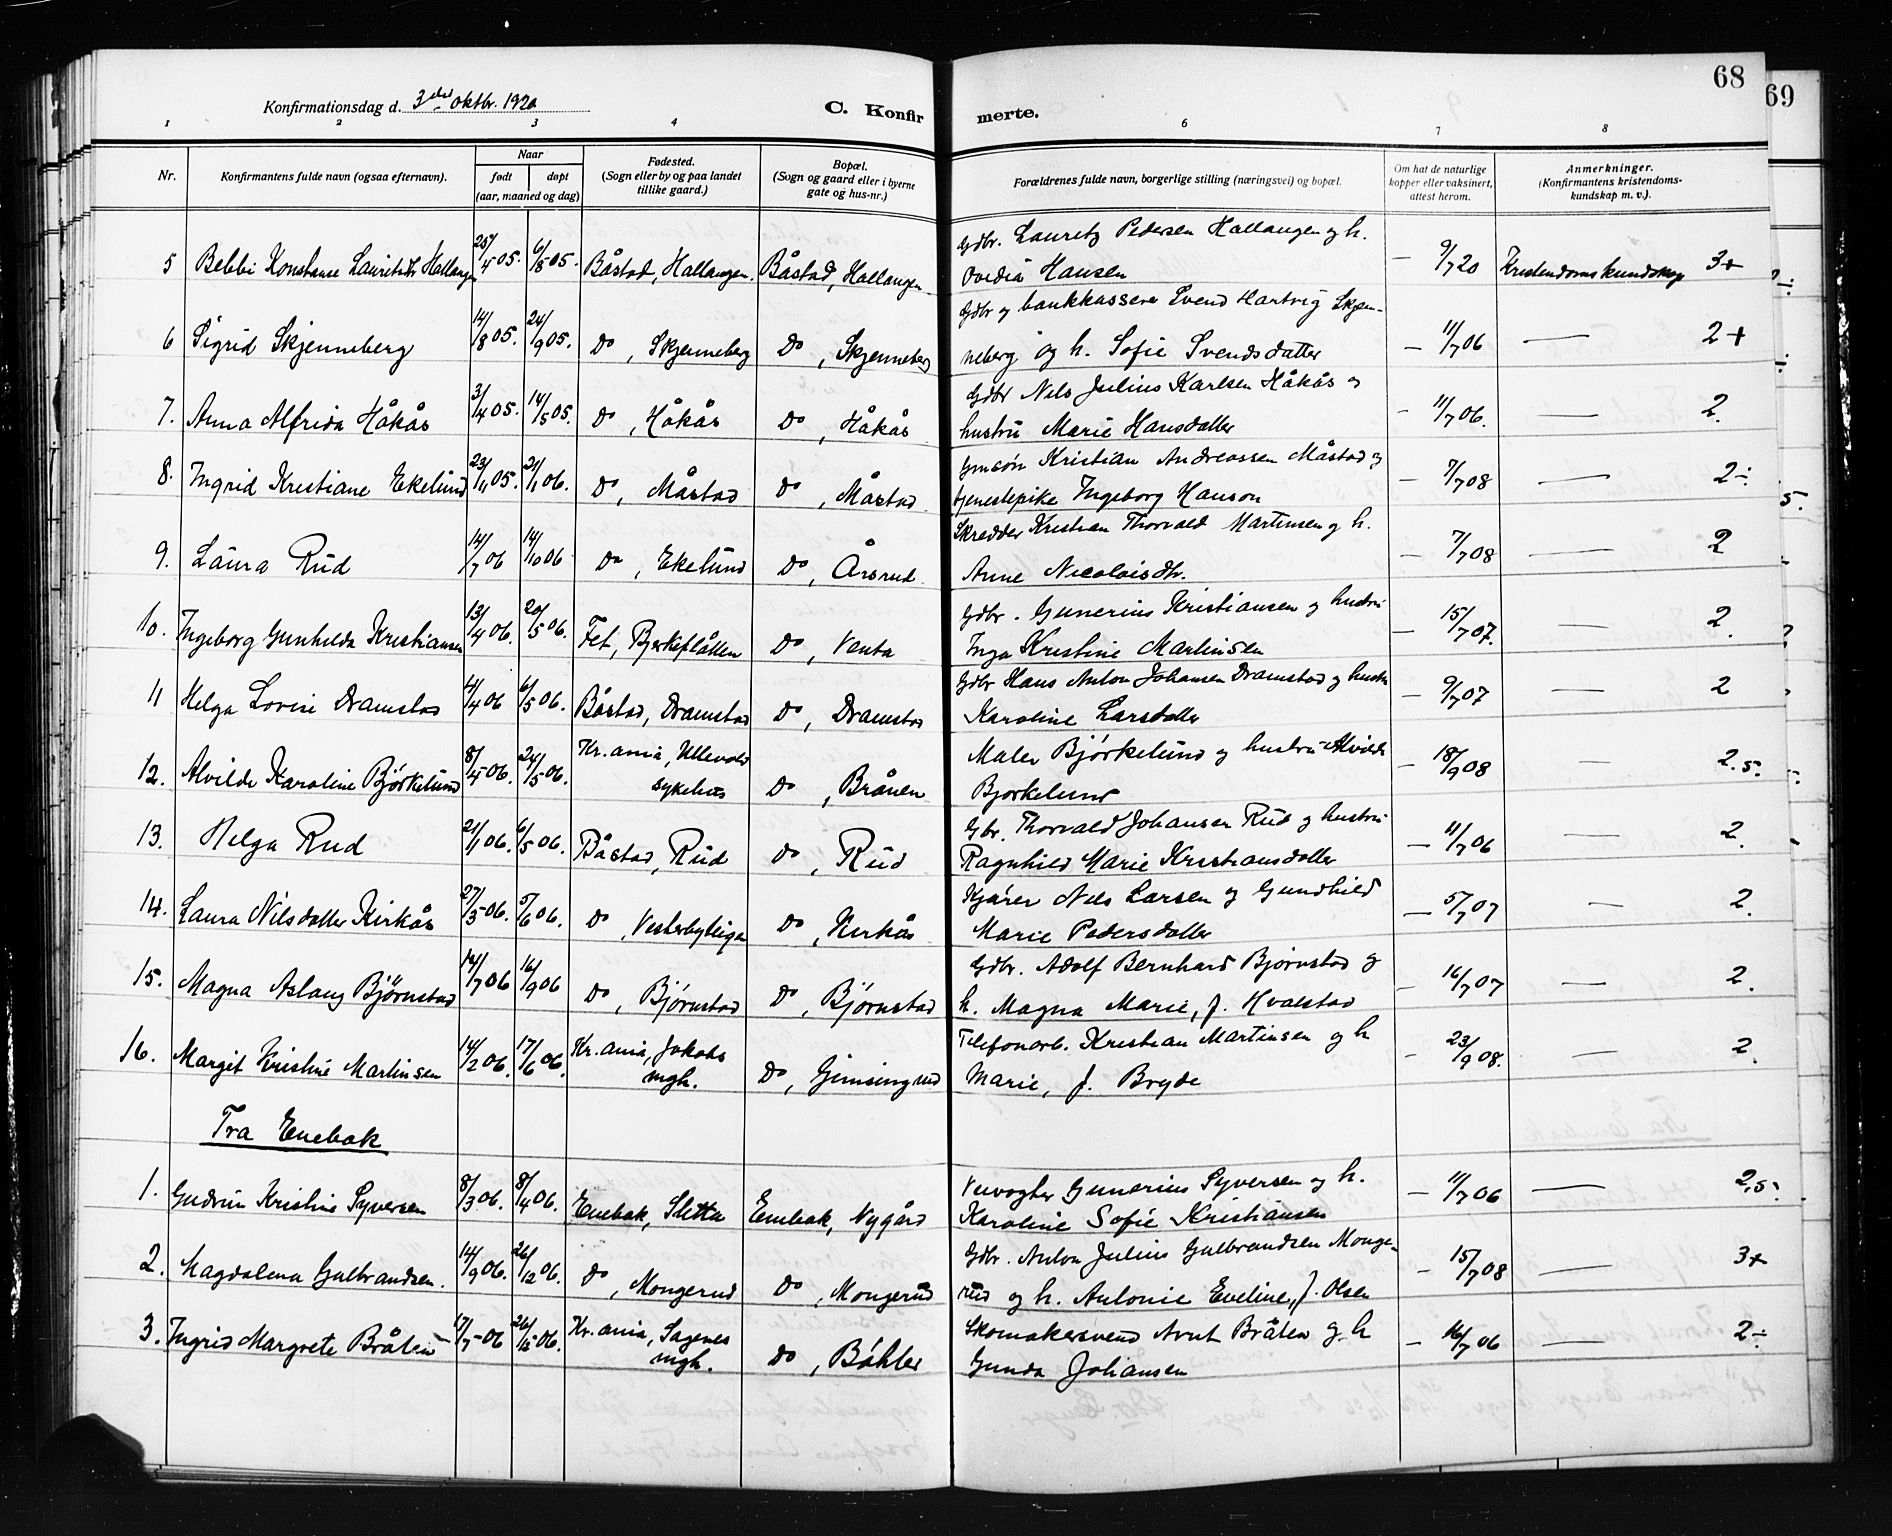 68
69
Konfirmationsdag d. 3die oktbr. 1920
C. Konfirmerte.
1 2 3 4 6 7 8
Nr.
Konfirmantens fulde navn (ogsaa efternavn).
Naar
født
døpt
(aar, maaned og dag)
Fødested.
(Sogn eller by og paa landet
tillike gaard.)
Bopæl.
(Sogn og gaard eller i byerne
gate og hus-nr.)
Forældrenes fulde navn, borgerlige stilling (næringsvei) og bopæl.
Om hat de naturlige
kopper eller vaksinert,
attest herom.
Anmerkninger.
(Konfirmantens kristendoms-
kundskap m. v.)
Gdbr. Lauretz Pedersen Hallangen og h.
5 Bebbi Konstanse Hallangen 25/4 05. 6/8 05. Båstad, Hallangen. Båstad, Hallangen Ovedia Hansen – 9/7 20 Kristendomskundskap 3+
Gdbr og bankkasserer Svend Hartvig Skjen-
6 Sigrid Skjenneberg 14/8 05. 24/9 05. Do, Skjenneberg Do, Skjenneberg neberg og h. Sofie Svendsdatter – 11/7 06 — 2+
Gdbr Nils Julius Karlsen Håkås og
7. Anna Alfrida Håkås 3/4 05. 14/5 05. Do, Håkås Do, Håkås hustru Marie Hansdatter – 11/7 06. — 2.
Kristian Andreassen Måstad og
8. Ingrid Kristiane Ekelund 23/11 05. 21/1 06. Do, Måstad Do, Måstad tjenestepike Ingeborg Hanson – 7/7 08 — 2÷
Skredder Kristian Thorvald Martinsen og h.
9. Laura Rud 14/7 06 14/10 06 Do, Ekelund Do, Årsrud Anne Nicolaisdtr. – 7/7 08 — 2
Gdbr. Gunerius Kristiansen og hustru
10. Ingeborg Gunhilda Kristiansen 13/4 06. 20/5 06. Fet, Bjerkeflåtten Do, Venta Inga Kristine Martinsen – 15/7 07. — 2.
Gdbr Hans Anton Johansen Dramstad og hustru
11 Helga Lovise Dramstad 4/4 06 6/5 06. Båstad, Dramstad Do, Dramstad Karoline Larsdatter – 9/7 07 — 2
Maler Bjørkelund og hustru Alvilde
12. Alvilde Karoline Bjørkelund 8/4 06. 24/5 06. Kr.ania, Ullevold
sykehus Do, Brånen Bjørkelund – 18/9 08 — 2.5.
Gbr. Thorvald Johansen Rud og hustru
13. Helga Rud 21/1 06. 6/5 06. Båstad, Rud Do, Rud Ragnhild Marie Kristiansdatter – 11/7 06 — 2.
Kjører Nils Larsen og Gundhild
14. Laura Nilsdatter Kirkås 27/3 06. 5/6 06. Do, Do, Kirkås Marie Pedersdatter – 5/7 07 — 2.
Gdbr. Adolf Bernhard Bjørnstad og
15. Magna Aslaug Bjørnstad 12/7 06 16/9 06 Do, Bjørnstad Do, Bjørnstad h. Magna Marie, f. Hvalstad – 16/7 07 — 2.
Telefonarb. Kristian Martinsen og h
16. Margit Kristine Martinsen 14/2 06. 17/6 06. Kr.ania, Jakobs
mgh. Do, Gimsingrud Marie, f. Bryde – 23/9 08. — 2.
Fra Enebak
Veivogter Gunerius Syversen og h.
1. Gudrun Kristine Syversen 8/3 06. 8/4 06. Enebak, Sletta Enebak, Nygård Karoline Sofie Kristiansen – 11/7 06 — 2,5.
Gdbr. Anton Julius Gulbrandsen Monge-
2. Magdalena Gulbrandsen. 14/9 06. 26/12 06. Do, Mongerud Do, Mongerud rud og h. Antonie Eveline, f. Olsen – 15/7 08 — 3+
Skomakersvend Arnt Bråten og h
3. Ingrid Margrete Bråten 17/5 06 Kr.ania, Sagenes
mgh. Do, Böhler Gunda Johansen – 16/7 06 — 2÷